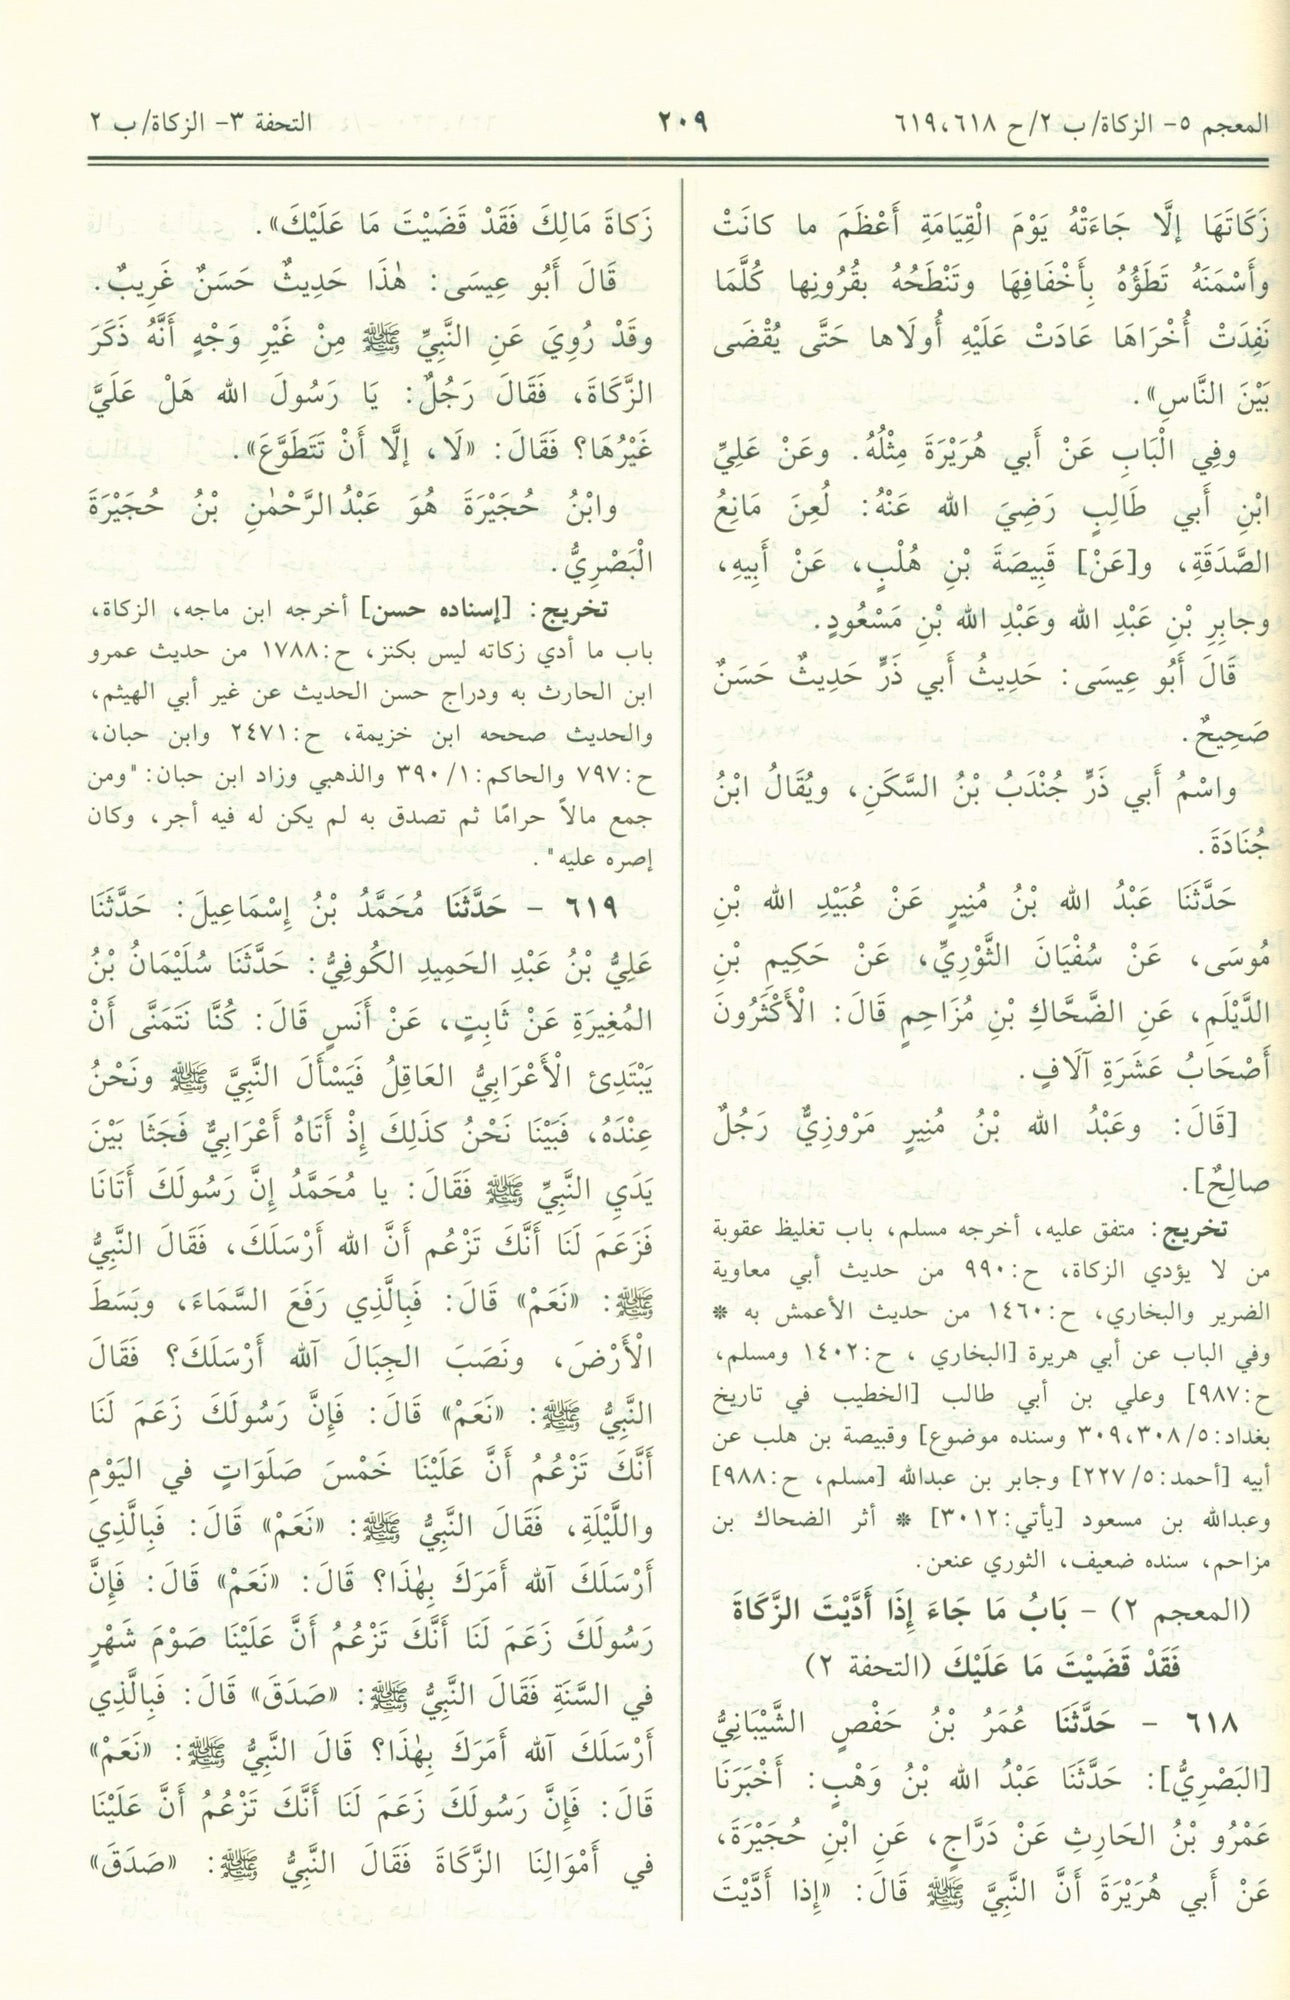 المعجم ٥- الزكاة/ ب ٢/ ح ٦١٩،٦١٨
٢٠٩
التحفة ٣- الزكاة/ ب ٢
زَكَاتَهَا إلَّا جَاءَتْهُ يَوْمَ الْقِيَامَةِ أَعْظَمَ ما كانَتْ
وأَسْمَنَهُ تَطَؤُهُ بِأَخْفَافِهَا وتَنْطَحُهُ بقُرُونِها كُلَّمَا
نَفِدَتْ أُخْرَاهَا عَادَتْ عَلَيْهِ أُولَاها حَتَّى يُقْضَى
بَيْنَ النَّاسِ».
وفِي الْبَابِ عَنْ أَبي هُرَيْرَةَ مِثْلُهُ. وعَنْ عَلِيِّ
ابْنِ أَبي طَالِبٍ رَضِيَ الله عَنْهُ: لُعِنَ مَانِعُ
الصَّدَقَةِ، و[عَنْ] قَبِيصَةَ بْنِ هُلْبٍ، عَنْ أَبِيهِ،
وجابِرِ بْنِ عَبْدِ الله وعَبْدِ الله بْنِ مَسْعُودٍ.
قَالَ أَبُو عِيسَى: حَدِيثُ أَبي ذَرٍّ حَدِيثٌ حَسَنٌ
صَحِيحٌ.
واسْمُ أَبي ذَرٍّ جُنْدَبُ بْنُ السَّكَنِ، ويُقَالُ ابْنُ
جُنَادَةَ.
حَدَّثَنَا عَبْدُ الله بْنُ مُنِيرٍ عَنْ عُبَيْدِ الله بْنِ
مُوسَى، عَنْ سُفْيَانَ الثَّوْرِيِّ، عَنْ حَكِيمِ بْنِ
الدَّيْلَمِ، عَنِ الضَّحَّاكِ بْنِ مُزَاحِمٍ قَالَ: الْأَكْثَرُونَ
أَصْحَابُ عَشَرَةِ آلَافٍ.
[قَالَ: وعَبْدُ الله بْنُ مُنِيرٍ مَرْوزِيٌّ رَجُلٌ
صالِحٌ].
تخريج: متفق عليه، أخرجه مسلم، باب تغليظ عقوبة
من لا يؤدي الزكاة، ح:٩٩٠ من حديث أبي معاوية
الضرير والبخاري، ح:١٤٦٠ من حديث الأعمش به *
وفي الباب عن أبي هريرة [البخاري ، ح:١٤٠٢ ومسلم،
ح:٩٨٧] وعلي بن أبي طالب [الخطيب في تاريخ
بغداد:٣٠٩،٣٠٨/٥ وسنده موضوع] وقبيصة بن هلب عن
أبيه [أحمد:٢٢٧/٥] وجابر بن عبدالله [مسلم، ح:٩٨٨]
وعبدالله بن مسعود [يأتي:٣٠١٢] * أثر الضحاك بن
مزاحم، سنده ضعيف، الثوري عنعن.
(المعجم ٢) - بَابُ مَا جَاءَ إِذَا أَدَّيْتَ الزَّكَاةَ
فَقَدْ قَضَيْتَ مَا عَلَيْكَ (التحفة ٢)
٦١٨ - حَدَّثَنَا عُمَرُ بْنُ حَفْصٍ الشَّيْبَانِيُّ
[البَصْرِيُّ]: حَدَّثَنَا عَبْدُ الله بْنُ وَهْبٍ: أَخْبَرَنَا
عَمْرُو بْنُ الحَارِثِ عَنْ دَرَّاجٍ، عَنِ ابْنِ حُجَيْرَةَ،
عَنْ أَبي هُرَيْرَةَ أَنَّ النَّبِيَّ ﷺ قَالَ: «إِذا أَدَّيْتَ
زَكاةَ مَالِكَ فَقَدْ قَضَيْتَ مَا عَلَيْكَ».
قَالَ أَبُو عِيسَى: هٰذَا حَدِيثٌ حَسَنٌ غَرِيبٌ.
وقَدْ رُوِيَ عَنِ النَّبِيِّ ﷺ مِنْ غَيْرِ وَجْهٍ أَنَّهُ ذَكَرَ
الزَّكَاةَ، فَقَالَ رَجُلٌ: يَا رَسُولَ الله هَلْ عَلَيَّ
غَيْرُهَا؟ فَقَالَ: «لَا، إلَّا أَنْ تَتَطَوَّعَ».
وابْنُ حُجَيْرَةَ هُوَ عَبْدُ الرَّحْمٰنِ بْنُ حُجَيْرَةَ
الْبَصْرِيُّ.
تخريج: [إسناده حسن] أخرجه ابن ماجه، الزكاة،
باب ما أدي زكاته ليس بكنز، ح:١٧٨٨ من حديث عمرو
ابن الحارث به ودراج حسن الحديث عن غير أبي الهيثم،
والحديث صححه ابن خزيمة، ح:٢٤٧١ وابن حبان،
ح:٧٩٧ والحاكم:٣٩٠/١ والذهبي وزاد ابن حبان: "ومن
جمع مالاً حرامًا ثم تصدق به لم يكن له فيه أجر، وكان
إصره عليه".
٦١٩ - حَدَّثَنَا مُحَمَّدُ بْنُ إِسْمَاعِيلَ: حَدَّثَنَا
عَلِيُّ بْنُ عَبْدِ الحَمِيدِ الكُوفِيُّ: حَدَّثَنَا سُلَيْمَانُ بْنُ
المُغِيرَةِ عَنْ ثَابِتٍ، عَنْ أَنَسٍ قَالَ: كُنَّا نَتَمَنَّى أَنْ
يَبْتَدِئ الْأَعْرَابِيُّ العَاقِلُ فَيَسْأَلَ النَّبِيَّ ﷺ ونَحْنُ
عِنْدَهُ، فَبَيْنَا نَحْنُ كذَلِكَ إِذْ أَتَاهُ أَعْرَابِيٌّ فَجَثَا بَيْنَ
يَدَيِ النَّبِيِّ ﷺ فَقَالَ: يا مُحَمَّدُ إِنَّ رَسُولَكَ أَتَانَا
فَزَعَمَ لَنَا أَنَّكَ تَزْعُم أَنَّ الله أَرْسَلَكَ، فَقَالَ النَّبِيُّ
ﷺ: «نَعَمْ» قَالَ: فَبِالَّذِي رَفَعَ السَّمَاءَ، وبَسَطَ
الْأَرْضَ، ونَصَبَ الجِبَالَ آلله أَرْسَلَكَ؟ فَقَالَ
النَّبِيُّ ﷺ: «نَعَمْ» قَالَ: فَإِنَّ رَسُولَكَ زَعَمَ لَنَا
أَنَّكَ تَزْعُمُ أَنَّ عَلَيْنَا خَمْسَ صَلَوَاتٍ في اليَوْمِ
واللَّيْلَةِ، فَقَالَ النَّبِيُّ ﷺ: «نَعَمْ» قَالَ: فَبِالَّذِي
أَرْسَلَكَ آلله أَمَرَكَ بِهٰذَا؟ قَالَ: «نَعَمْ» قَالَ: فَإِنَّ
رَسُولَكَ زَعَمَ لَنَا أَنَّكَ تَزْعُمُ أَنَّ عَلَيْنَا صَوْمَ شَهْرٍ
في السَّنَةِ فَقَالَ النَّبِيُّ ﷺ: «صَدَقَ» قَالَ: فَبِالَّذِي
أَرْسَلَكَ آلله أَمَرَكَ بِهٰذَا؟ قَالَ النَّبِيُّ ﷺ: «نَعَمْ»
قَالَ: فَإِنَّ رَسُولَكَ زَعَمَ لَنَا أَنَّكَ تَزْعُمُ أَنَّ عَلَيْنَا
في أَمْوَالِنَا الزَّكَاةَ فَقَالَ النَّبِيُّ ﷺ: «صَدَقَ»